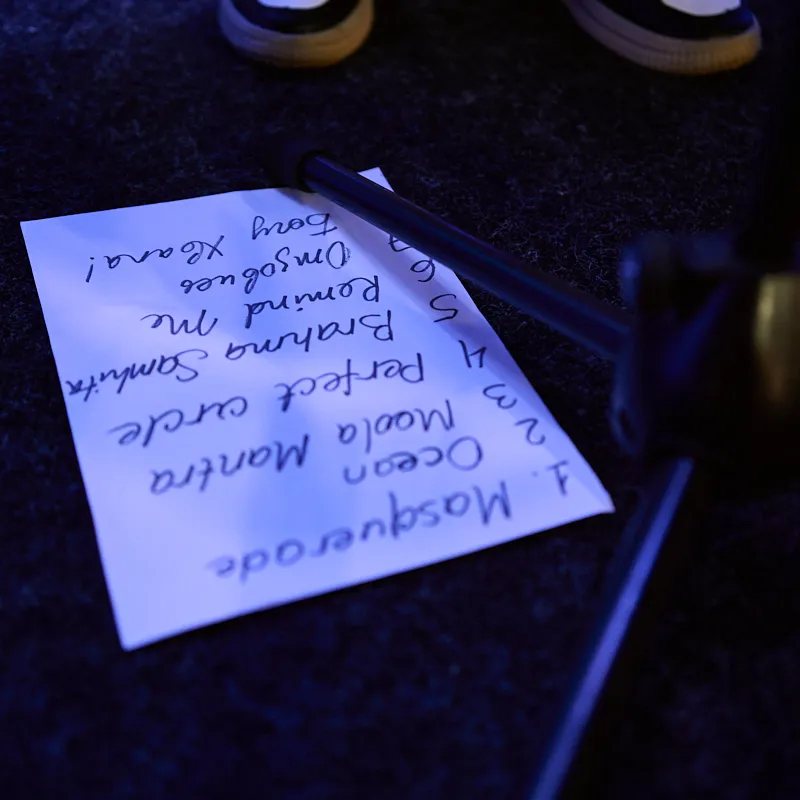 1. Masquerade
2 Ocean
3 Moola Mantra
4 Perfect circle
5 Brahma Samhita
6 Remind Me
7
Богу Хвала!